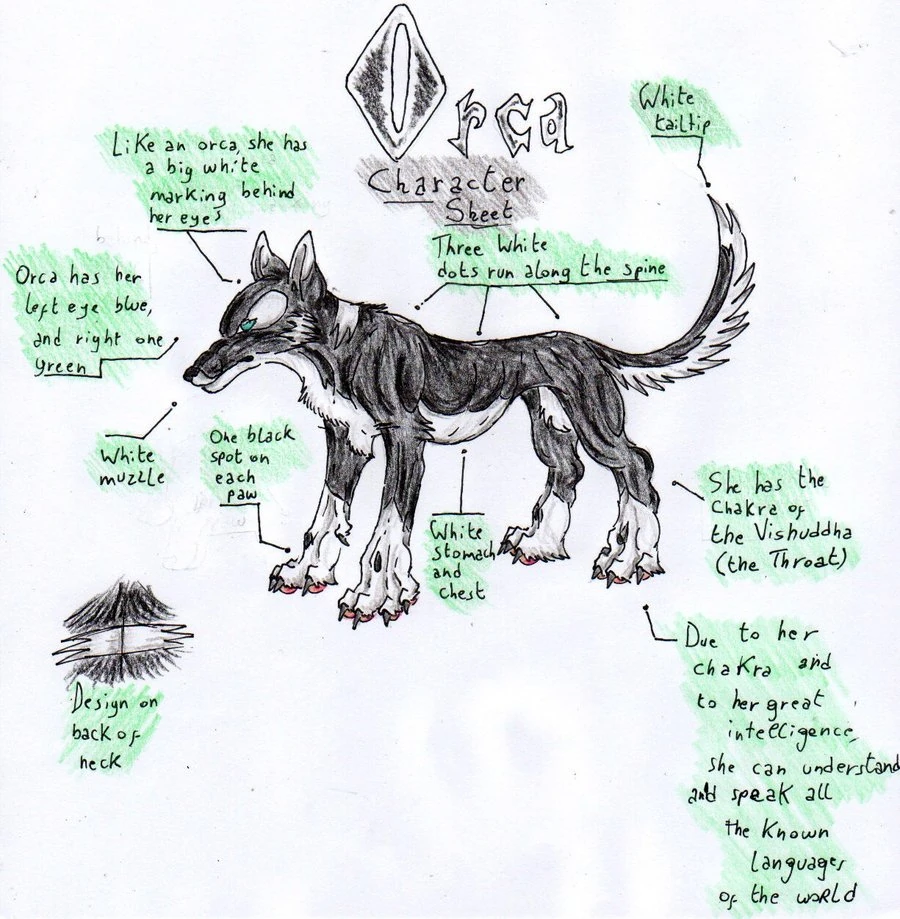 Orca
Character
Sheet
White
tailtip
Like an orca, she has
a big white
marking behind
her eyes
Three white
dots run along the spine
Orca has her
left eye blue,
and right one
green
White
muzzle
One black
spot on
each
paw
White
stomach
and
chest
She has the
chakra of
the Vishuddha
(the Throat)
Design on
back of
neck
Due to her
chakra and
to her great
intelligence,
she can understand
and speak all
the known
languages
of the world